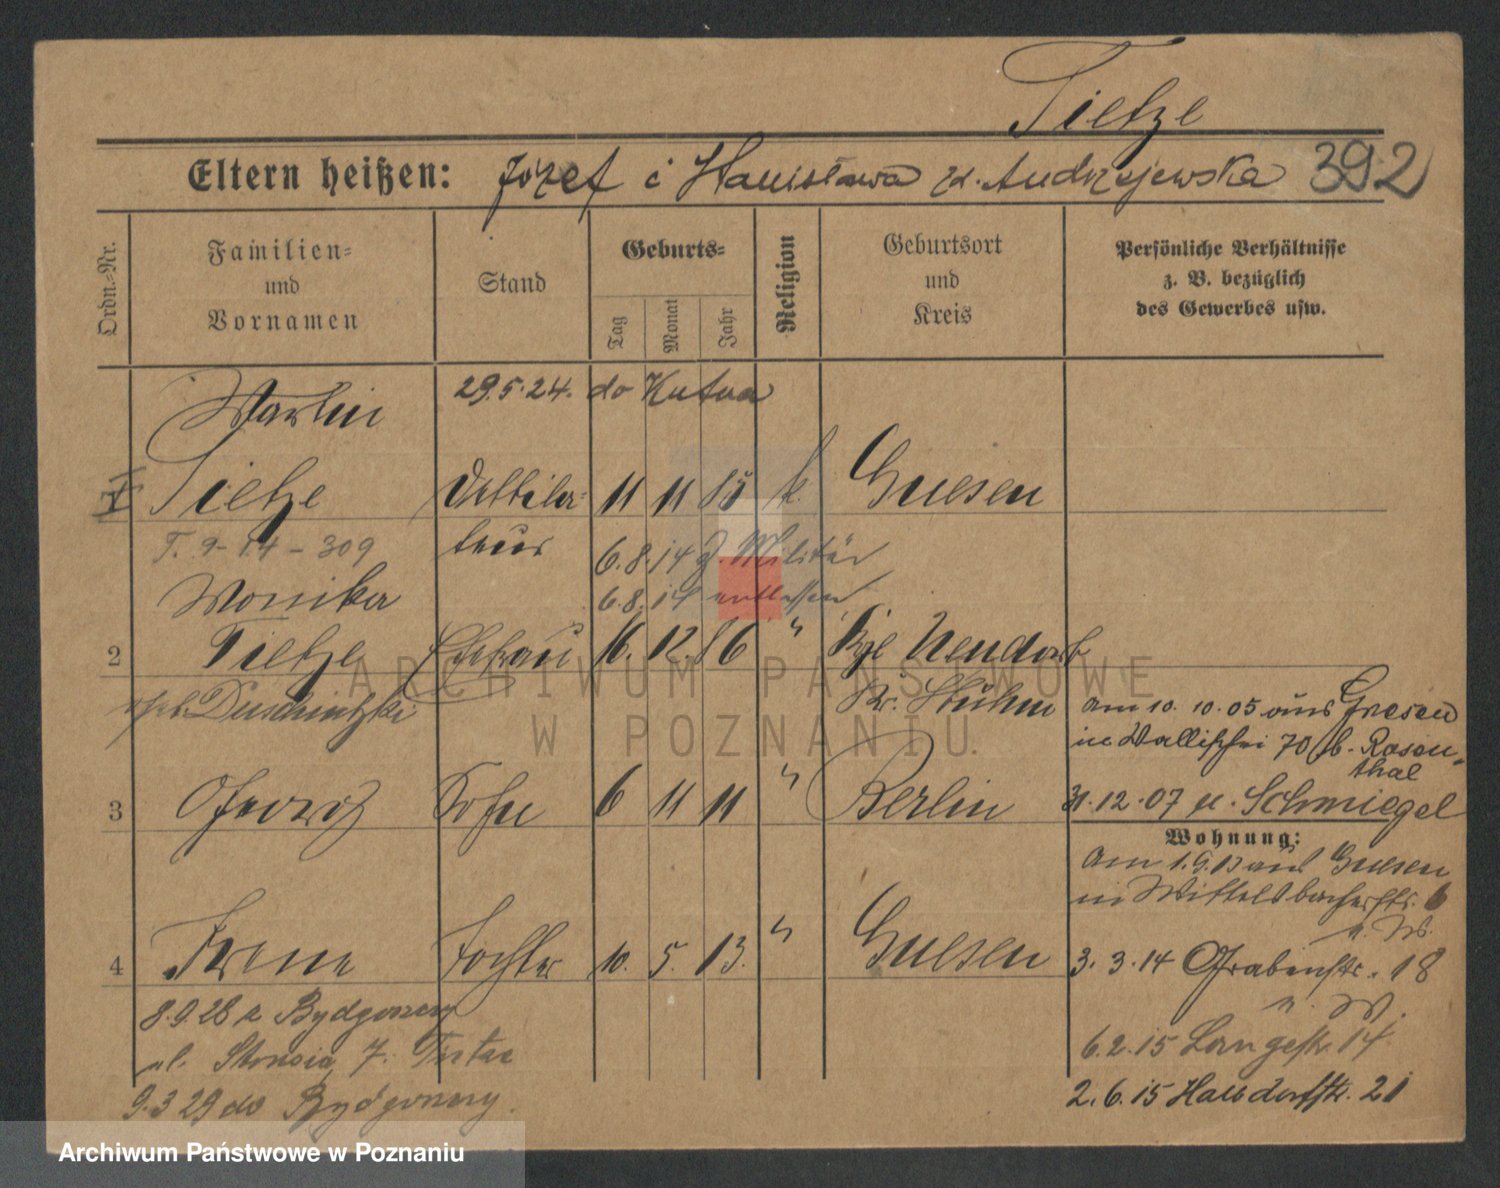 Tietze
Eltern heißen: Józef i Stanisława zd. Andrzejewska 392
Ordn.-Nr.
Familien-
und
Vornamen
Stand
Geburts-
Tag
Monat
Jahr
Religion
Geburtsort
und
Kreis
Persönliche Verhältnisse
z. B. bezüglich
des Gewerbes usw.
Martin 29.5.24. do Kutna
1 Tietze 11 11 85 k. Gnesen
T. 9-14-309
6.8.14 z. Militär
6.8.14 entlassen
Monika
2 Tietze Ehefrau 16. 12. 86 " Neudorf
Kr. Stuhm
am 10. 10. 05 aus Gnesen
in Wallischei 70 b. Rosen-
thal
3 Georg Sohn 6 11 11 " Berlin
31.12.07 n. Schmiegel
Wohnung:
am 1.9.13 aus Gnesen
in Wittelsbacherstr. 6
n. W.
4 Irene Tochter 10. 5. 13. " Gnesen
3. 3. 14 Grabenstr. 18
n. W.
8.9.28 z Bydgoszczy
ul. 7. Tietze
6.2.15 Langestr. 14
9.3 29 do Bydgoszczy.
2.6.15 Halbdorfstr. 21
ARCHIWUM PAŃSTWOWE
W POZNANIU
Archiwum Państwowe w Poznaniu